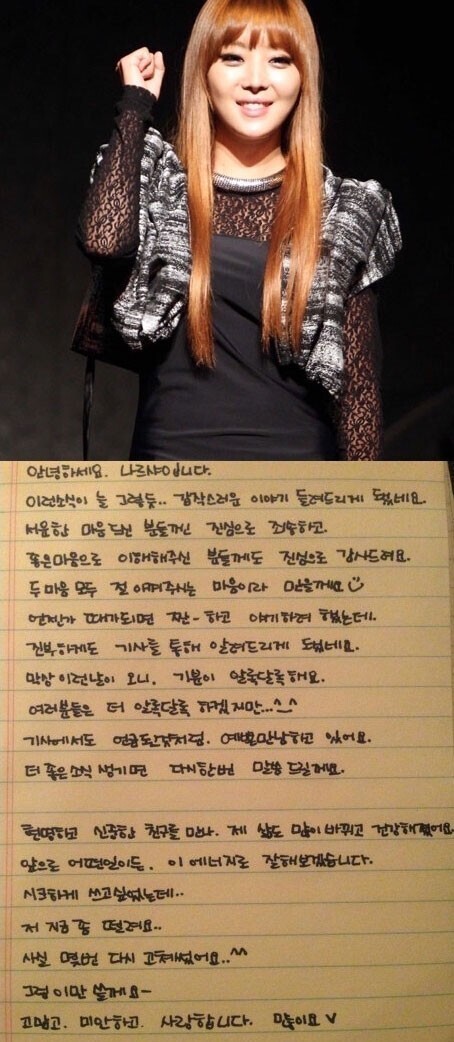 안녕하세요. 나르샤입니다.
이런소식이 늘 그렇듯.. 갑작스러운 이야기 들려드리게 됐네요.
서운한 마음드신 분들껜 진심으로 죄송하고.
좋은마음으로 이해해주신 분들께도 진심으로 감사드려요.
두마음 모두 절 아껴주시는 마음이라 믿을께요
언젠가 때가되면 짠-하고 얘기하려 했는데.
진부하게도 기사를 통해 알려드리게 됐네요.
막상 이런날이 오니, 기분이 알록달록해요.
여러분들은 더 알록달록 하겠지만...^-^
기사에서도 언급된것처럼. 예쁜만남하고 있어요.
더 좋은소식 생기면 다시한번 말씀 드릴께요.
현명하고 신중한 친구를 만나. 제 삶도 많이 바뀌고 건강해졌어요
앞으로 어떤일이든. 이 에너지로 잘해보겠습니다.
시크하게 쓰고싶었는데..
저 지금 좀 떨려요..
사실 몇번 다시 고쳐썼어요..^^
그럼 이만 쓸께요-
고맙고. 미안하고. 사랑합니다. 민훗이요 V